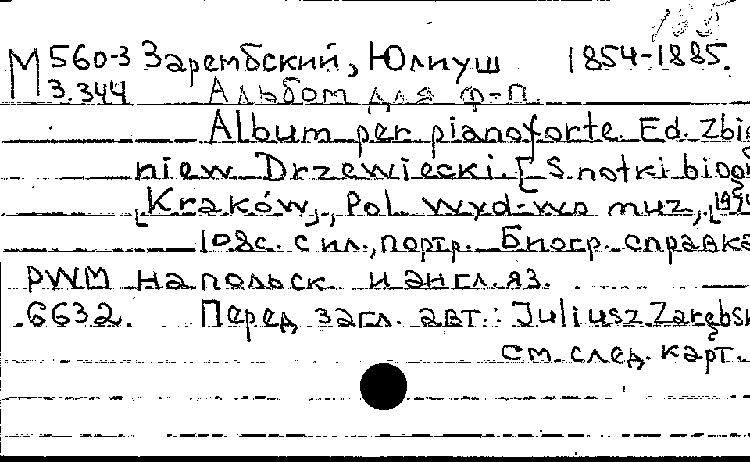 185
М 560-3 Зарембский, Юлиуш 1854-1885.
3.344 Альбом для ф-п.
Album per pianoforte. Ed. Zbig
niew Drzewiecki. [S. notki biogr
[Kraków], Pol. wyd-wo muz, [197
108с. с ил., портр. Биогр. справка
PWM на польск и англ. яз.
6632. Перед загл. авт.: Juliusz Zarębsk
см. след. карт.